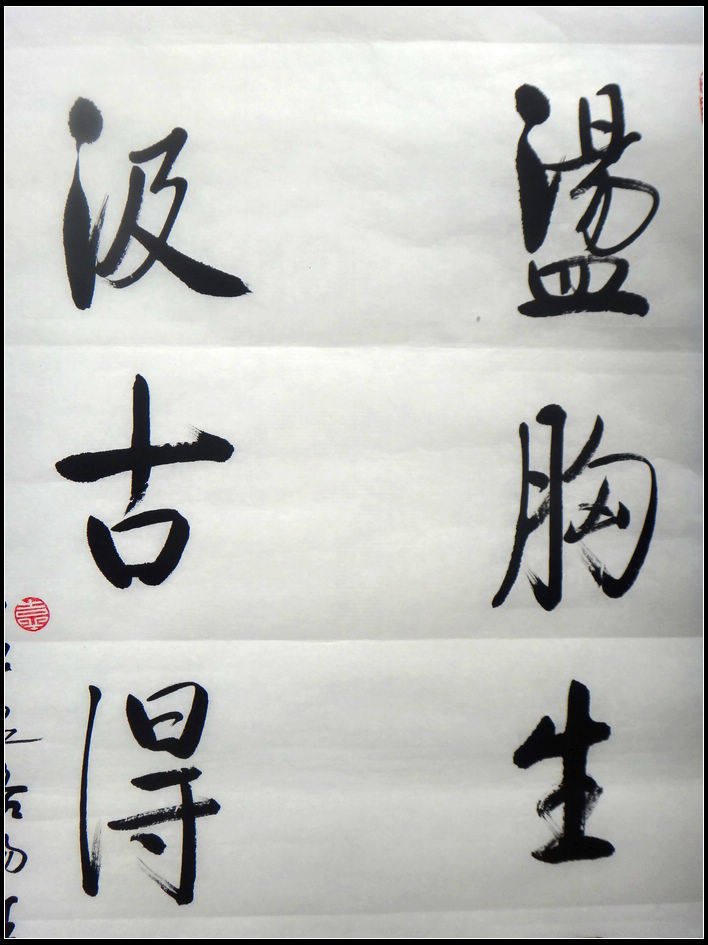 盪胸生
汲古得